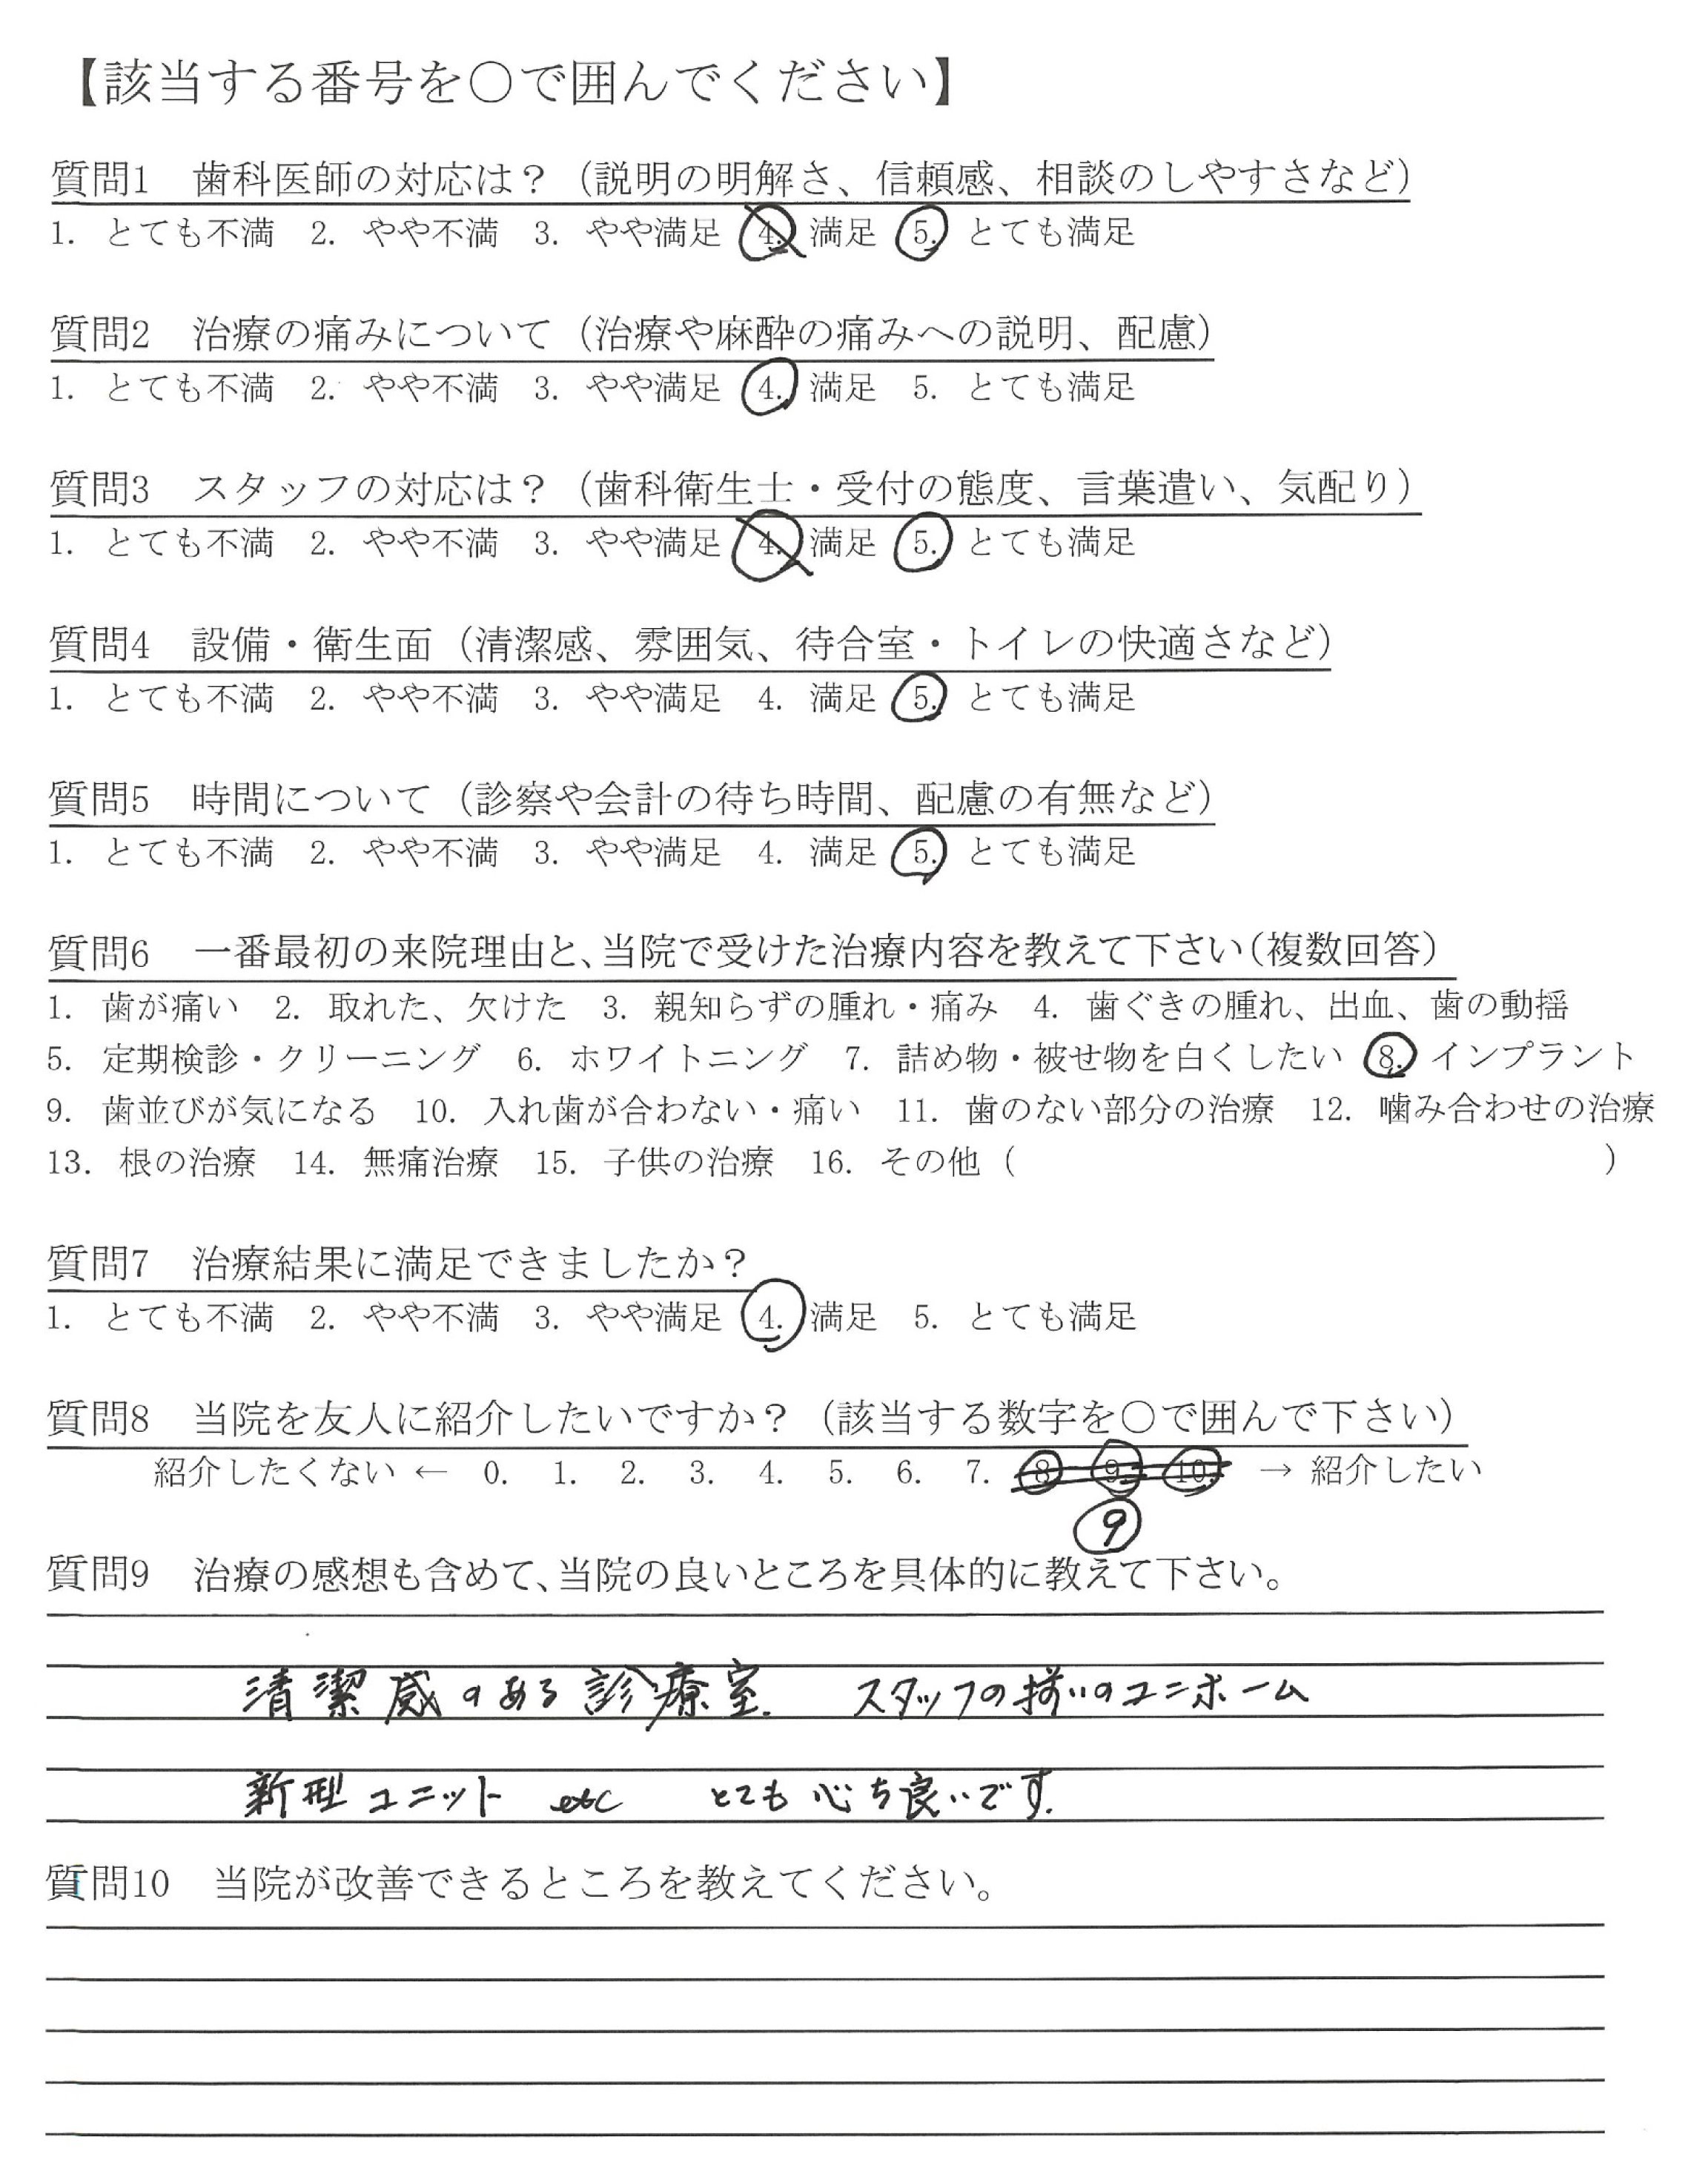 【該当する番号を○で囲んでください】
質問1　歯科医師の対応は？（説明の明解さ、信頼感、相談のしやすさなど）
1. とても不満　2. やや不満　3. やや満足　4. 満足　5. とても満足
質問2　治療の痛みについて（治療や麻酔の痛みへの説明、配慮）
1. とても不満　2. やや不満　3. やや満足　4. 満足　5. とても満足
質問3　スタッフの対応は？（歯科衛生士・受付の態度、言葉遣い、気配り）
1. とても不満　2. やや不満　3. やや満足　4. 満足　5. とても満足
質問4　設備・衛生面（清潔感、雰囲気、待合室・トイレの快適さなど）
1. とても不満　2. やや不満　3. やや満足　4. 満足　5. とても満足
質問5　時間について（診察や会計の待ち時間、配慮の有無など）
1. とても不満　2. やや不満　3. やや満足　4. 満足　5. とても満足
質問6　一番最初の来院理由と、当院で受けた治療内容を教えて下さい（複数回答）
1. 歯が痛い　2. 取れた、欠けた　3. 親知らずの腫れ・痛み　4. 歯ぐきの腫れ、出血、歯の動揺
5. 定期検診・クリーニング　6. ホワイトニング　7. 詰め物・被せ物を白くしたい　8. インプラント
9. 歯並びが気になる　10. 入れ歯が合わない・痛い　11. 歯のない部分の治療　12. 噛み合わせの治療
13. 根の治療　14. 無痛治療　15. 子供の治療　16. その他（　　　　　　　　）
質問7　治療結果に満足できましたか？
1. とても不満　2. やや不満　3. やや満足　4. 満足　5. とても満足
質問8　当院を友人に紹介したいですか？（該当する数字を○で囲んで下さい）
紹介したくない ← 0. 1. 2. 3. 4. 5. 6. 7. 8. 9. 10. → 紹介したい
9
質問9　治療の感想も含めて、当院の良いところを具体的に教えて下さい。
清潔感のある診療室. スタッフの揃いのユニホーム
新型ユニット etc とても心ち良いです.
質問10　当院が改善できるところを教えてください。